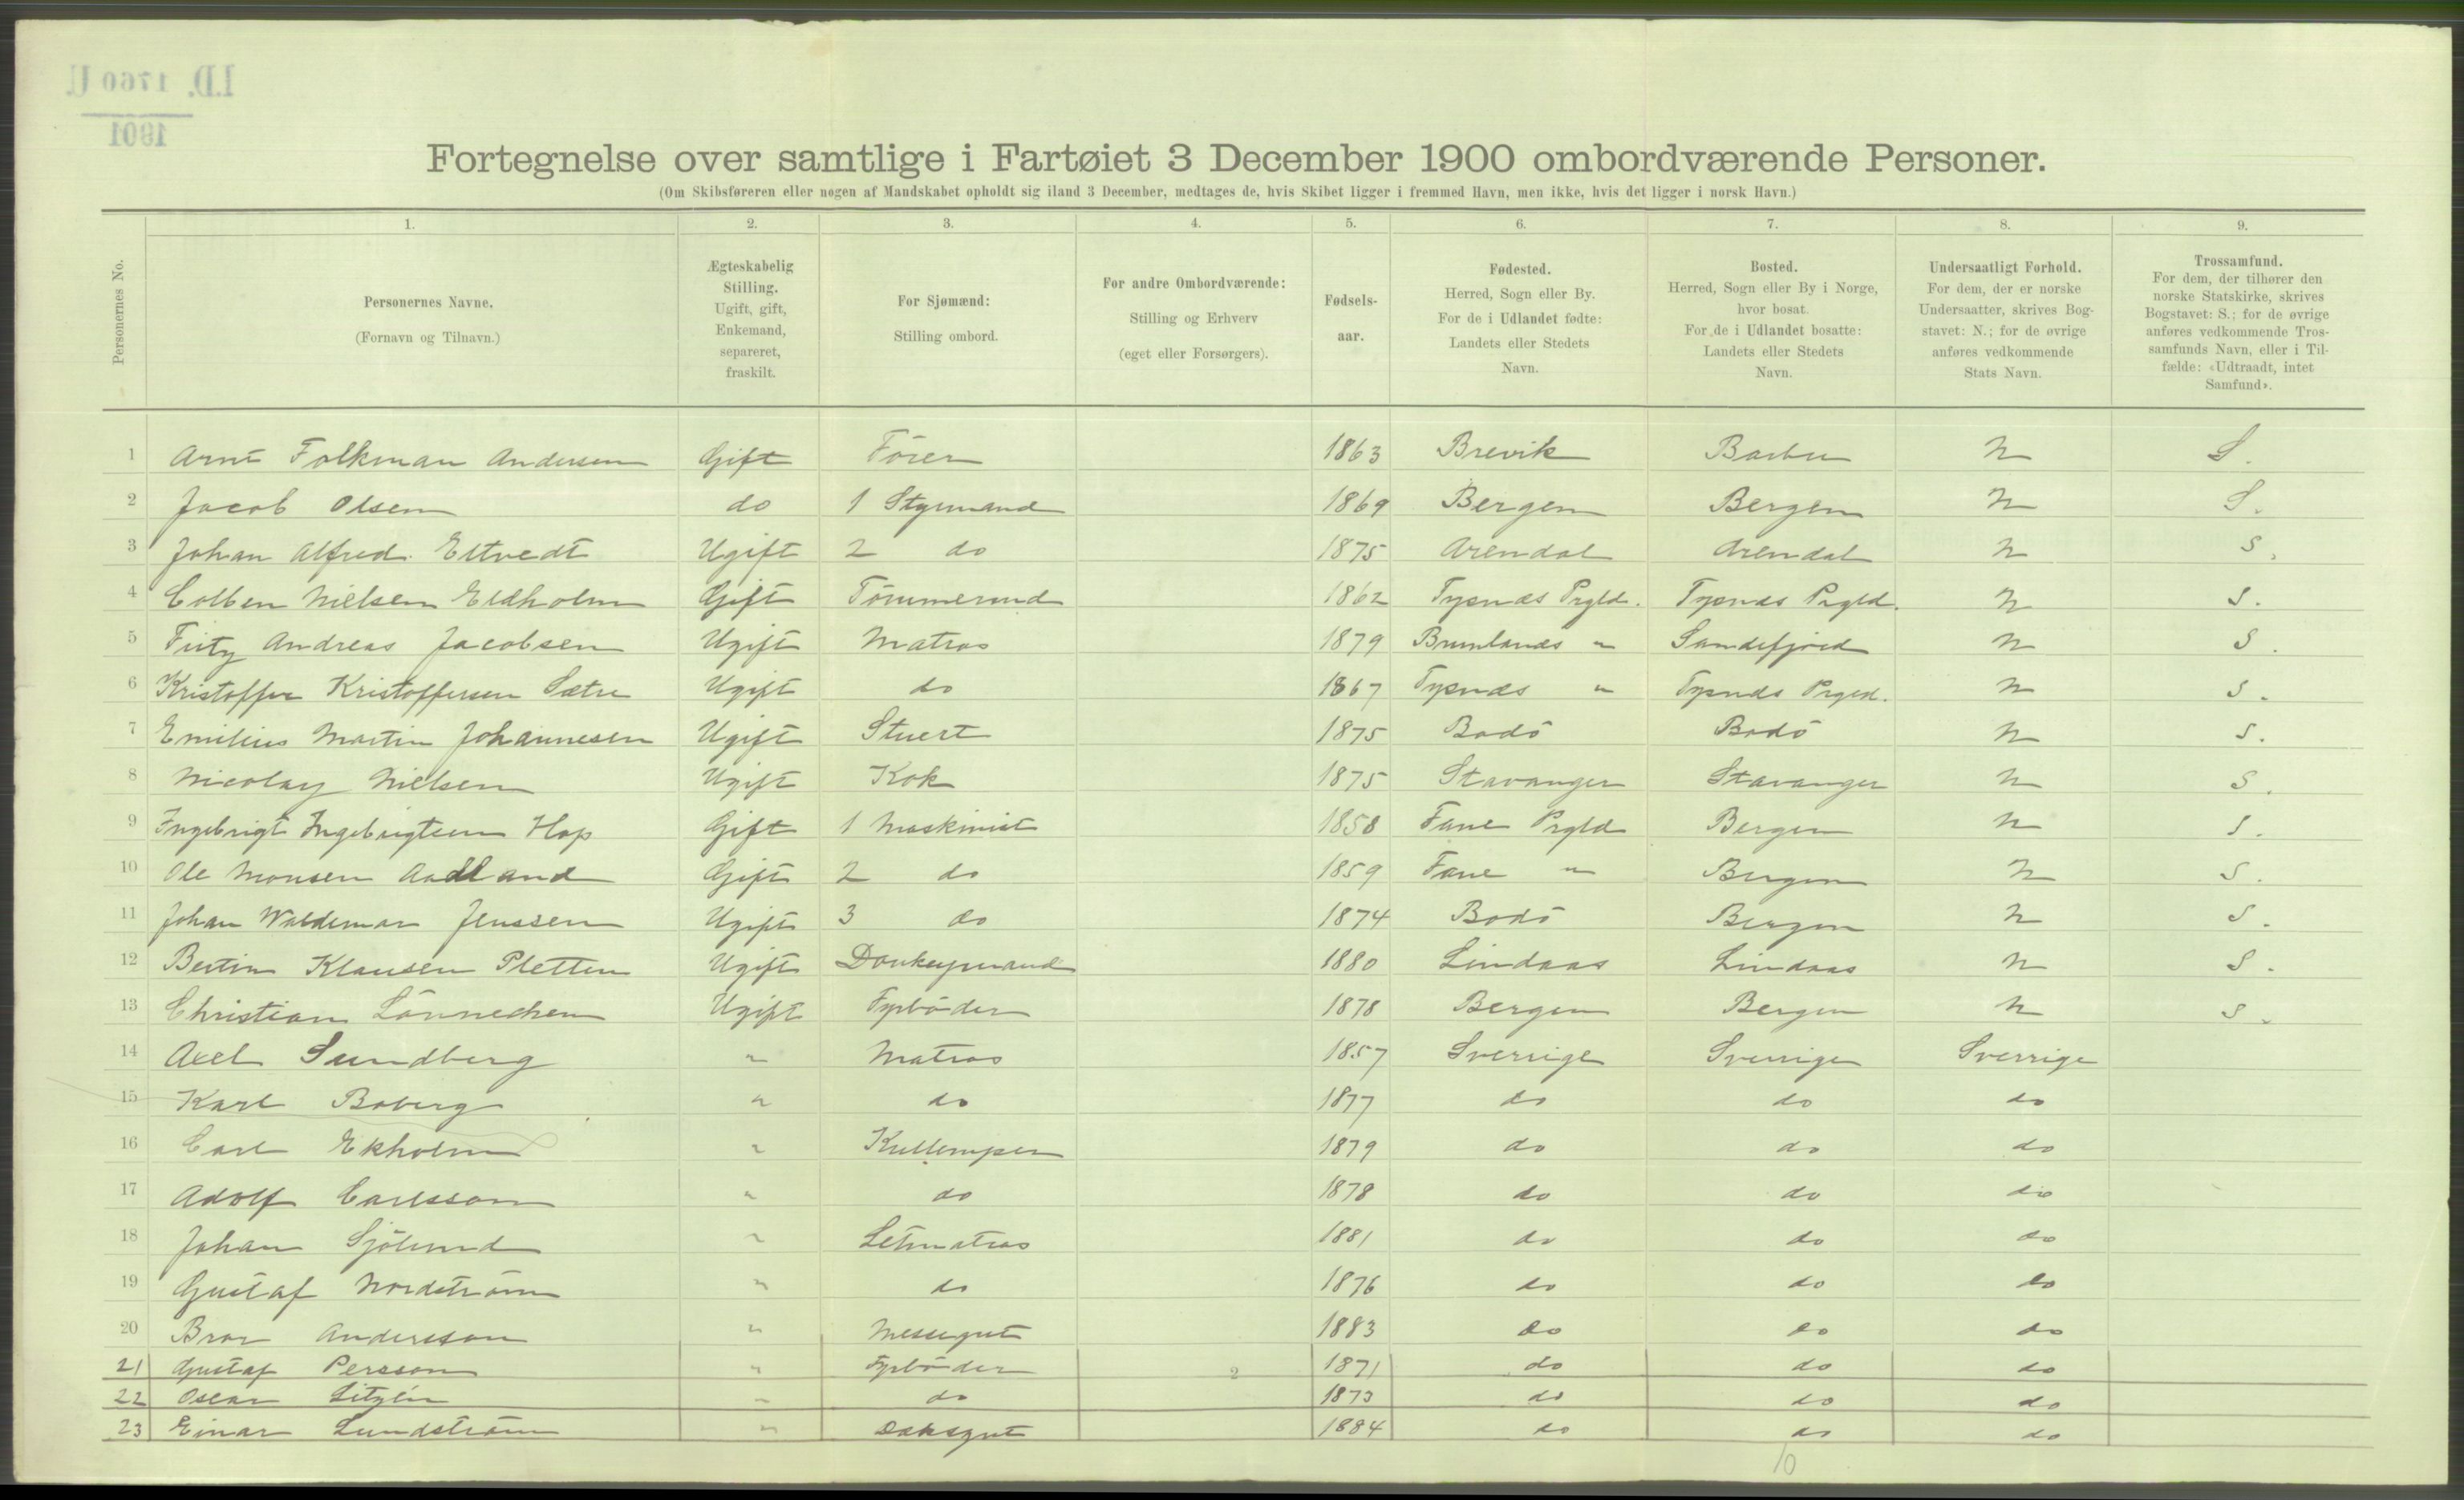 I.D. 1760 U
1901
Fortegnelse over samtlige i Fartøiet 3 December 1900 ombordværende Personer.
(Om Skibsføreren eller nogen af Mandskabet opholdt sig iland 3 December, medtages de, hvis Skibet ligger i fremmed Havn, men ikke, hvis det ligger i norsk Havn.)
Personernes No.
1. 2. 3. 4. 5. 6. 7. 8. 9.
Personernes Navne.
(Fornavn og Tilnavn.)
Ægteskabelig
Stilling.
Ugift, gift,
Enkemand,
separeret,
fraskilt.
For Sjømænd:
Stilling ombord.
For andre Ombordværende:
Stilling og Erhverv
(eget eller Forsørgers).
Fødsels-
aar.
Fødested.
Herred, Sogn eller By.
For de i Udlandet fødte:
Landets eller Stedets
Navn.
Bosted.
Herred, Sogn eller By i Norge,
hvor bosat.
For de i Udlandet bosatte:
Landets eller Stedets
Navn.
Undersaatligt Forhold.
For dem, der er norske
Undersaatter, skrives Bog-
stavet: N.; for de øvrige
anføres vedkommende
Stats Navn.
Trossamfund.
For dem, der tilhører den
norske Statskirke, skrives
Bogstavet: S.; for de øvrige
anføres vedkommende Tros-
samfunds Navn, eller i Til-
fælde: «Udtraadt, intet
Samfund».
1 Arnt Folkman Andersen Gift Förer 1863 Brevik Barbu N S.
2 Jacob Olsen do 1 Styrmand 1869 Bergen Bergen N S.
3 Johan Alfred Eltvedt Ugift 2 do 1875 Arendal Arendal N S.
4 Colben Nielsen Eldholm Gift Tömmermd 1862 Tysnæs Prgld. Tysnæs Prgld. N S.
5 Fritz Andreas Jacobsen Ugift Matros 1879 Brunlanæs " Sandefjord N S.
6 Kristoffer Kristoffersen Sætre Ugift do 1867 Tysnæs " Tysnæs Prgld. N S.
7 Emilius Martin Johannesen Ugift Stuert 1875 Bodö Bodö N S.
8 Nicolay Nielsen Ugift Kok 1875 Stavanger Stavanger N S.
9 Ingebrigt Ingebrigtsen Hop Gift 1 Maskinist 1858 Fane Prgld Bergen N S.
10 Ole Monsen Aadland Gift 2 do 1859 Fane " Bergen N S.
11 Johan Waldemar Jenssen Ugift 3 do 1874 Bodö Bergen N S.
12 Bertin Klausen Pletten Ugift Donkeymand 1880 Lindaas Lindaas N S.
13 Christian Lönnechen Ugift Fyrböder 1878 Bergen Bergen N S.
14 Axel Sundberg " Matros 1857 Sverrige Sverrige Sverrige
15 Karl Boberg " do 1877 do do do
16 Carl Ekholm " Kullemper 1879 do do do
17 Adolf Carlsson " do 1878 do do do
18 Johan Sjölund " Letmatros 1881 do do do
19 Gustaf Nordström " do 1876 do do do
20 Bror Andersson " Messegut 1883 do do do
21 Gustaf Persson " Fyrböder 2 1871 do do do
22 Oscar Litzén " do 1873 do do do
23 Einar Lundström " Dæksgut 1884 do do do
10